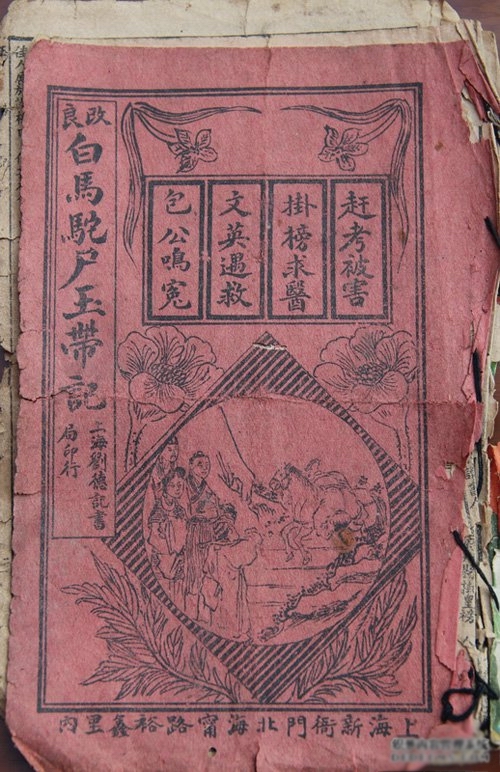 赶考被害
掛榜求醫
文英遇救
包公鳴冤
改良
白馬駝尸玉帶記
上海劉德記書
局印行
上海新衙門北海甯路裕鑫里內